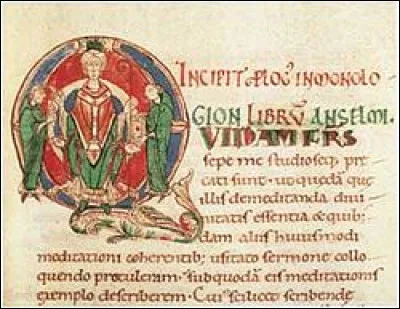 INCIPIT PLOG' IN MONOLO
GION LIBRU ANSELMI.
QUIDAM FRS
sepe me studioseq; pre
cati sunt. ut quedā que
illis de meditanda divi
nitatis essentia & quib;
dam aliis huius modi
meditationi coherentib; usitato sermone collo
quendo protuleram. sub quodā eis meditationis
exemplo describerem. Cuius scilicet scribende